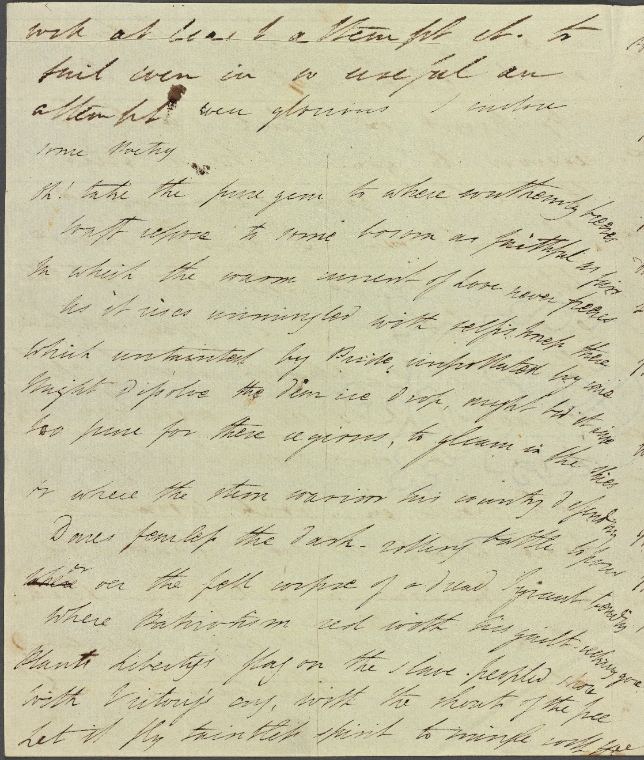 wish at least to attempt it. to
fail even in so useful an
attempt were glorious I enclose
some Poetry
Oh! take the pure gem to where southernly breezes
Waft repose to some bosom as faithful as fair
In which the warm current of Love never freezes
As it rises unmingled with selfishness there
Which untainted by Pride, unpolluted by care
Might dissolve the dim ice drop, might bid it arise
Too pure for these regions, to gleam in the skies
Or where the stern warrior his country defending
Dares fearless the dark-rolling battle to pour
Or o'er the fell corpse of a dread Tyrant bending
Where Patriotism red with his guilt-reeking gore
Plants Liberty's flag on the slave-peopled shore
With Victory's cry, with the shout of the free
Let it fly taintless spirit to mingle with thee